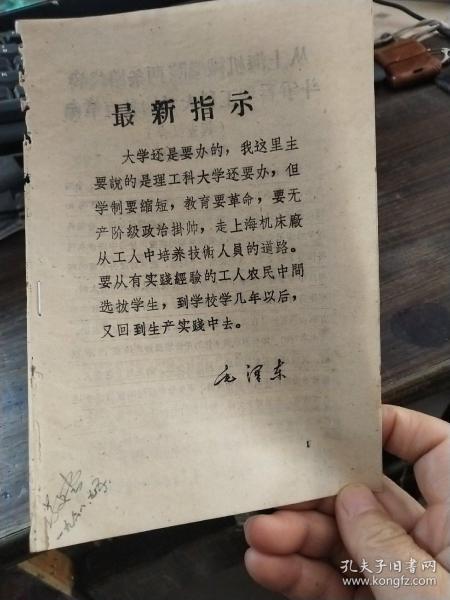 最新指示
大学还是要办的，我这里主
要說的是理工科大学还要办，但
学制要縮短，教育要革命，要无
产阶级政治掛帅，走上海机床廠
从工人中培养技術人員的道路。
要从有实踐經驗的工人农民中間
选拔学生，到学校学几年以后，
又回到生产实踐中去。
毛泽东
孔夫子旧书网
www.kongfz.com